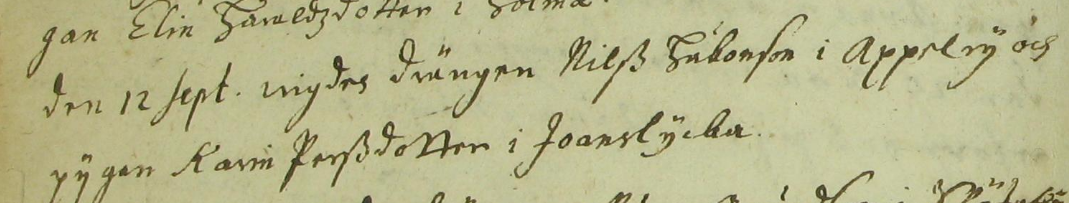 gan Elin Haraldzdotter i Holma.
den 12 sept. vigdes drängen Nilß Håkonson i Appelrÿ och
pÿgan Karin Perßdotter i Joanslÿcka.